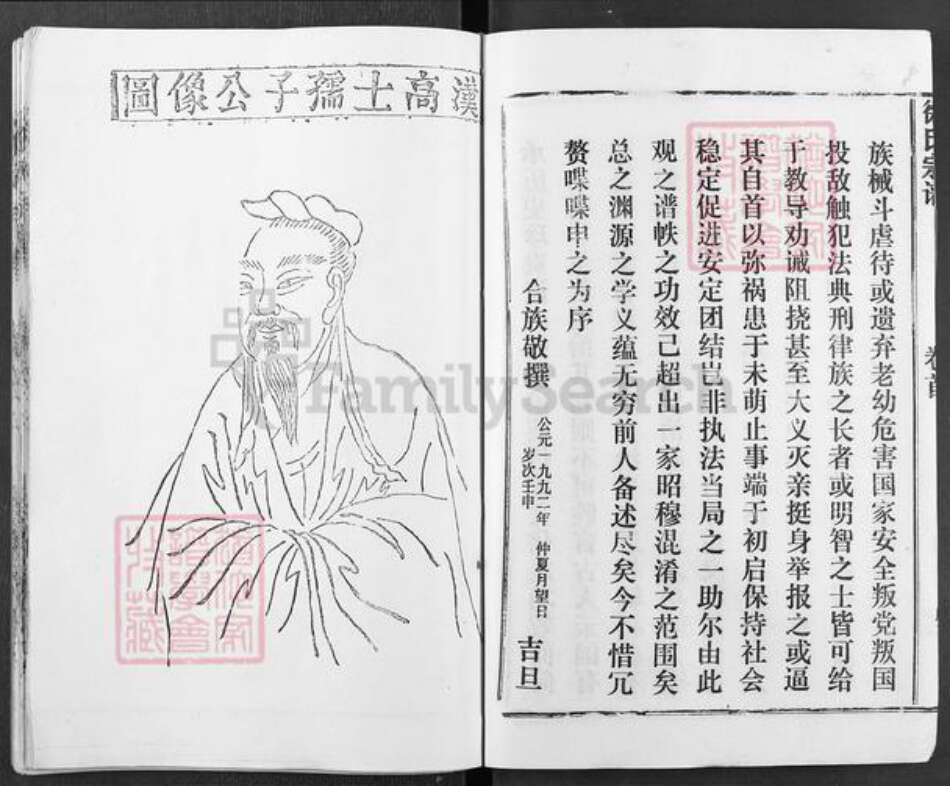 徐氏宗谱
卷首
族械斗虐待或遗弃老幼危害国家安全叛党叛国
投敌触犯法典刑律族之长者或明智之士皆可给
于教导劝诫阻挠甚至大义灭亲挺身举报之或逼
其自首以弥祸患于未萌止事端于初启保持社会
稳定促进安定团结岂非执法当局之一助尔由此
观之谱帙之功效己超出一家昭穆混淆之范围矣
总之渊源之学义蕴无穷前人备述尽矣今不惜冗
赘喋喋申之为序
合族敬撰 公元一九九二年 岁次壬申 仲夏月望日 吉旦
漢高士孺子公像圖
FamilySearch